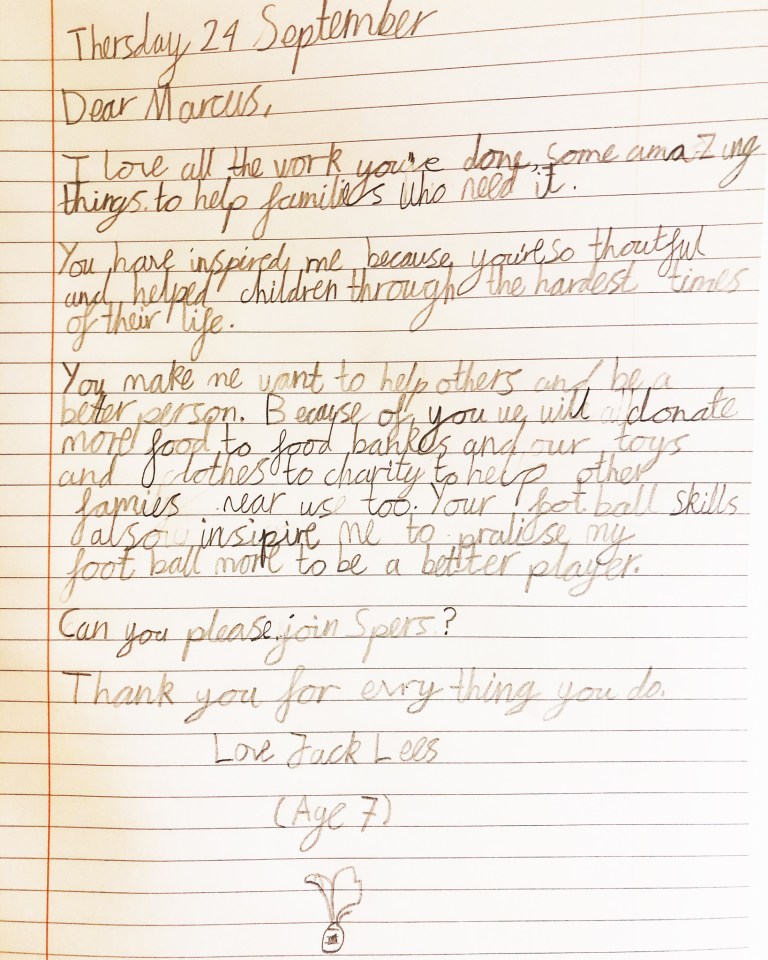 Thersday 24 September
Dear Marcus,
I love all the work you've done, some amazing
things to help families who need it.
You have inspired me because you're so thoutful
and helped children through the hardest times
of their life.
You make me want to help others and be a
better person. Because of you we will donate
more food to food bankes and our toys
and clothes to charity to help other
famies near us too. Your foot ball skills
also insipire me to pralicse my
foot ball more to be a better player.
Can you please join Spers?
Thank you for evry thing you do.
Love Jack Lees
(Age 7)